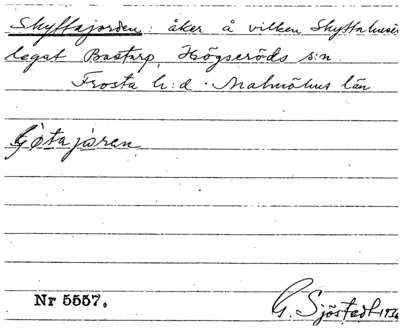 Skyttajorden: åker å vilken Skyttahuset
legat Bastarp, Högseröds s:n.
Frosta h:d. Malmöhus län
Götajøren
Nr 5557.
G. Sjöstedt